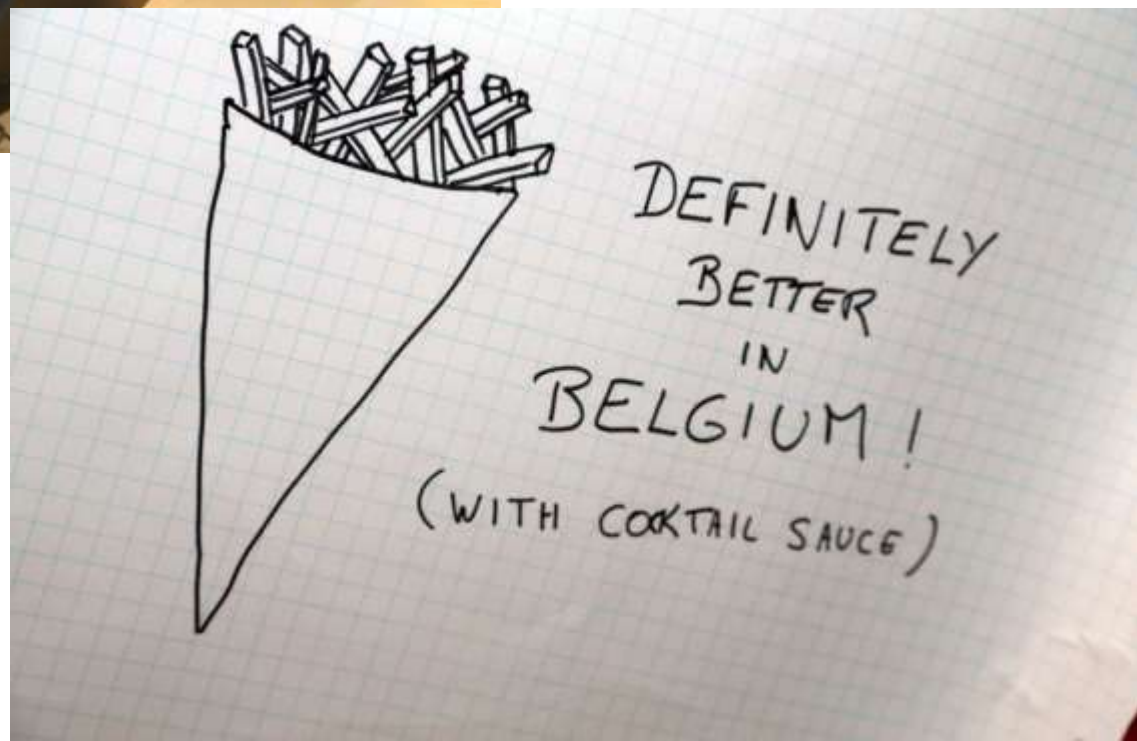 DEFINITELY
BETTER
IN
BELGIUM !
(WITH COCKTAIL SAUCE)